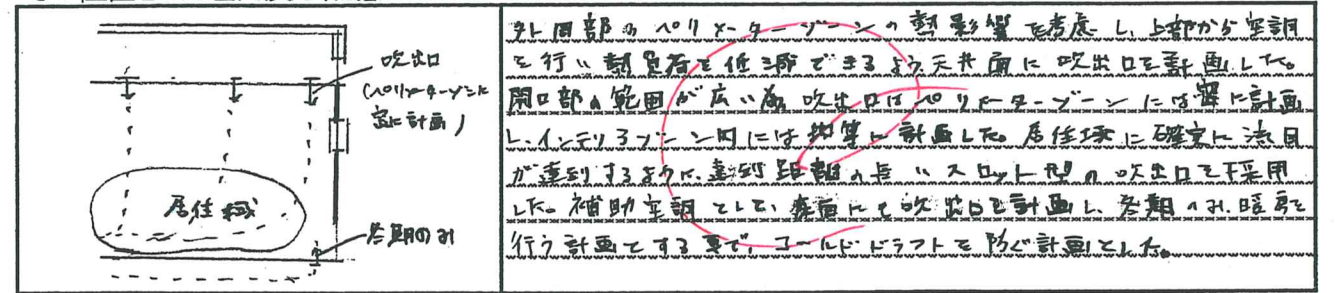 吹出口
(ペリメーターゾーンに
密に計画)
居住域
冬期のみ
外周部のペリメーターゾーンの熱影響を考慮し、上部から空調
を行い熱負荷を低減できるよう天井面に吹出口を計画した。
開口部の範囲が広い為、吹出口はペリメーターゾーンには密に計画
し、インテリアゾーン内には均等に計画した。居住域に確実に法目
が達到するように、達到距離の長いスロット型の吹出口を採用
した。補助空調として、床面にも吹出口を計画し、冬期のみ、暖房を
行う計画とする事で、コールドドラフトを防ぐ計画とした。